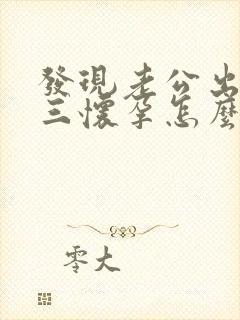 發現老公出
三懷孕怎麼
零大